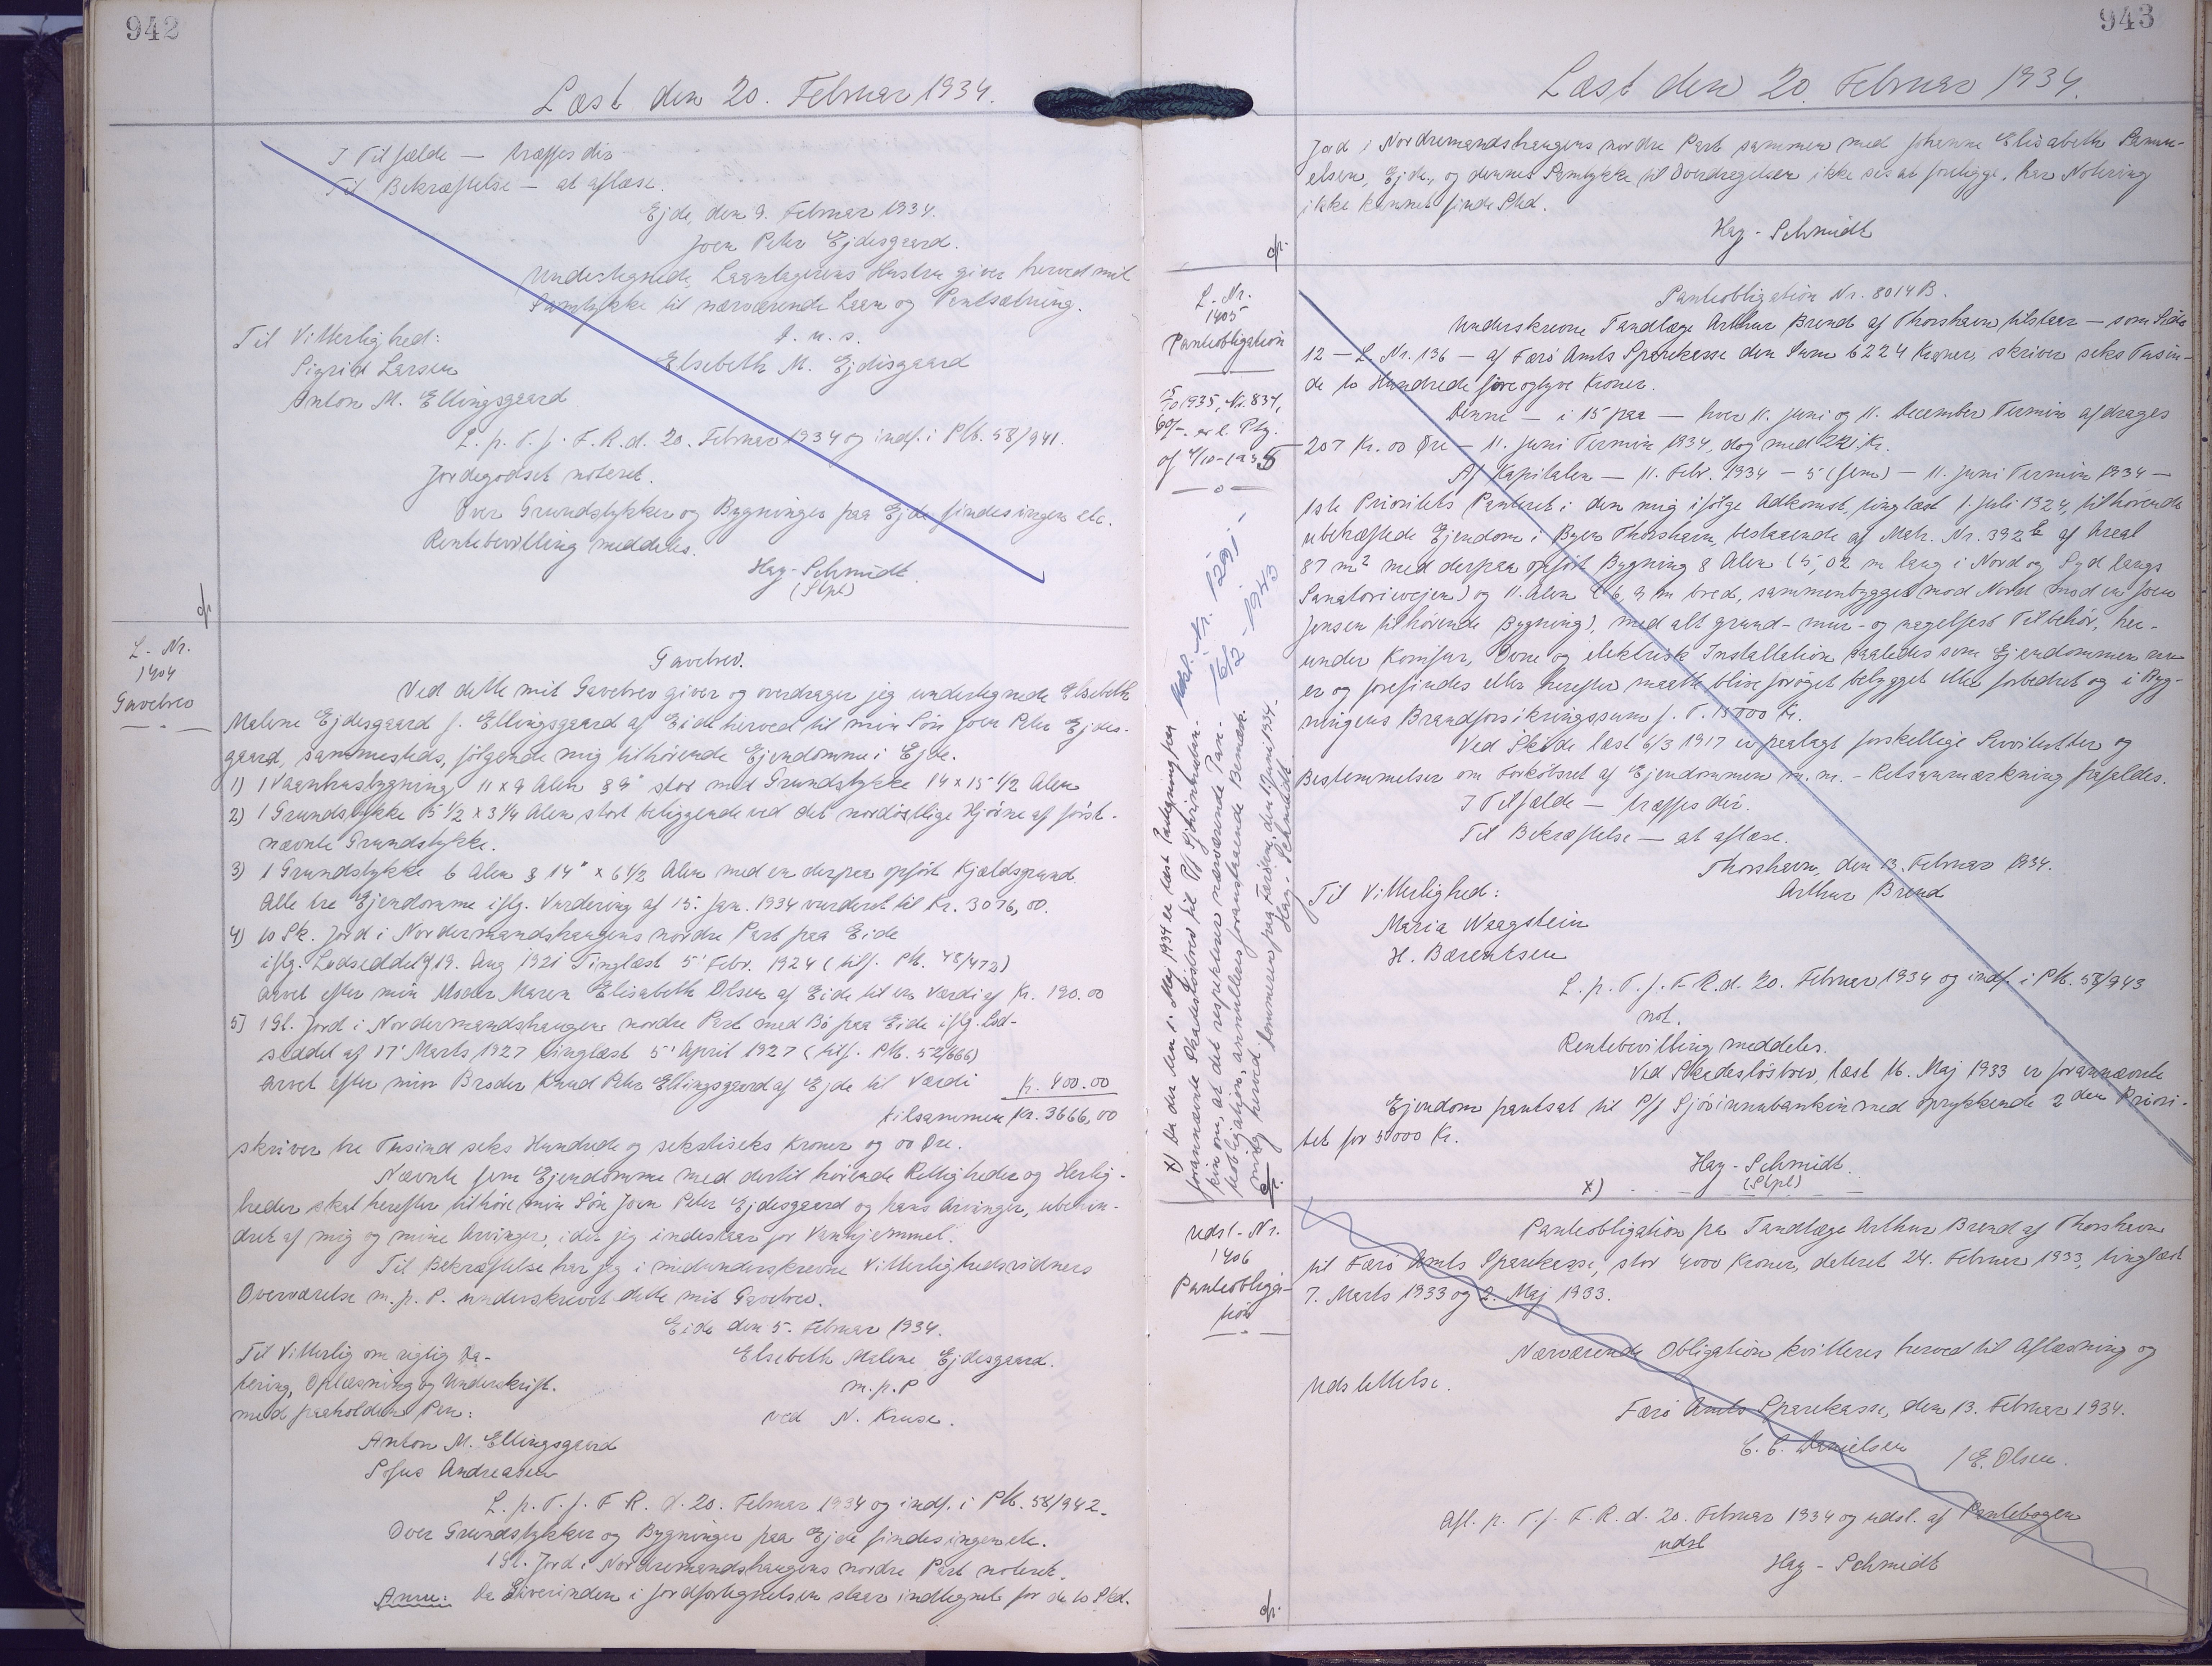 942
Læst den 20. Februar 1934.
I Tilfælde — træffes div.
Til Bekræftelse — at aflæse.
Ejde, den 9. Februar 1934.
Joen Peter Ejdesgaard.
Undertegnede, Laantagerens Hustru giver herved mit
Samtykke til nærværende Laan og Pantsætning.
D. u. s.
Til Vitterlighed:
Elsebeth M. Ejdisgaard
Sigrid Larsen
Anton M. Ellingsgaard
L. p. T. f. F. R. d. 20. Februar 1934 og indf. i Ptb. 58/941.
Jordegodset noteret.
Over Grundstykker og Bygninger paa Ejde findes ingen etc.
Rentebevilling meddeles.
Hay-Schmidt
(Stpl)
cfr.
L. Nr.
1404
Gavebrev
Gavebrev.
Ved dette mit Gavebrev giver og overdrager jeg undertegnede Elsebeth
Malene Ejdesgaard f. Ellingsgaard af Eide herved til min Søn Joen Peter Ejdes-
gaard, sammesteds, følgende mig tilhørende Ejendomme i Ejde.
1) 1 Vaanhusbygning 11 x 9 Alen 8 9" stor med Grundstykke 14 x 15 1/2 Alen
2) 1 Grundstykke 15 1/2 x 3 1/4 Alen stort beliggende ved det nordöstlige Hjörne af först-
nævnte Grundstykke.
3) 1 Grundstykke 6 Alen 8 14" x 6 1/2 Alen med en derpaa opfört Kjældsgrund.
Alle tre Ejendomme iflg. Vurdering af 15. Jan. 1934 vurderet til Kr. 3076,00.
4) 10 Sk. Jord i Nordermandshaugens nordre Part paa Eide
iflg. Lodseddel af 19. Aug 1921 Tinglæst 5' Febr. 1924 (tilf. Ptb. 48/472)
arvet efter min Moder Maren Elisabeth Olsen af Eide til en Værdi af Kr. 190.00
5) 1 Gl. Jord i Nordermandshaugens nordre Part med Bö paa Eide iflg. Lod-
seddel af 17' Marts 1927 tinglæst 5' April 1927 (tilf. Ptb. 52/666)
arvet efter min Broder Knud Peter Ellingsgaard af Ejde til Værdi Kr. 400.00
tilsammen Kr. 3666,00
skriver tre Tusind seks Hundrede og sekstiseks Kroner og 00 Øre.
Nævnte fem Ejendomme med dertil hörende Rettigheder og Herlig-
heder skal herefter tilhöre min Sön Joen Peter Ejdesgaard og hans Arvinger, ubehin-
dret af mig og mine Arvinger, idet jeg indestaar for Vanhjemmel.
Til Bekræftelse har jeg i medunderskrevne Vitterlighedsvidners
Overværelse m. p. P. underskrevet dette mit Gavebrev.
Eide den 5. Februar 1934.
Til Vitterlig om rigtig Da-
Elsebeth Malene Ejdesgaard.
tering, Oplæsning og Underskrift
m. p. P
med paaholden Pen:
ved N. Kruse.
Anton M. Ellingsgaard
Sofus Andreasen
L. p. T. f. F. R. d. 20. Februar 1934 og indf. i Ptb. 58/942.
Over Grundstykker og Bygninger paa Ejde findes ingen etc.
1 Gl. Jord i Nordremandshaugens nordre Part noteret.
Anm: Da Giverinden i Jordfortegnelsen staar indtegnet for de 10 Skd.
943
Læst den 20. Februar 1934.
Jord i Nordremandshaugens nordre Part sammen med Johanne Elisabeth Samu-
elsen, Ejde, og dennes Samtykke til Overdragelsen ikke ses at foreligge, har Notering
ikke kunnet finde Sted.
Hay-Schmidt
cfr.
L. Nr.
1405
Panteobligation
1935, Nr. 834,
af 4/10-1935
Panteobligation Nr. 8014 B.
Underskrevne Tandlæge Arthur Brend af Thorshavn tilstaar — som Side
12 — L. Nr. 136 — af Færö Amts Sparekasse den Sum 6224 Kroner, skriver seks Tusin-
de to Hundrede fireogtyve Kroner.
Denne — i 15 paa — hver 11. Juni og 11. December Termin afdrages
207 Kr. 00 Øre — 11. Juni Termin 1934, dog med 221 Kr.
Af Kapitalen — 11. Febr. 1934 — 5 (fem) — 11. Juni Termin 1934 —
1ste Prioritets Panteret i den mig ifölge Adkomst, tinglæst 1. Juli 1924, tilhörende
ubehæftede Ejendom i Byen Thorshavn, bestaaende af Matr. Nr. 392 b af Areal
87 m² med derpaa opfört Bygning 8 Alen (5,02 m lang i Nord og Syd langs
Sanatorievejen) og 11 Alen (6,9 m bred, sammenbygget mod Nord mod en Joen
Jensen tilhörende Bygning), med alt grund- mur- og nagelfast Tilbehör, her-
under Komfur, Ovne og elektrisk Installation saaledes som Ejendommen nu
er og forefindes eller herefter maatte blive foröget bebygget eller forbedret og i Byg-
ningens Brandforsikringssum f. T. 15000 Kr.
Ved Sköde læst 6/3 1917 er paalagt forskellige Servitutter og
Bestemmelser om Forköbsret af Ejendommen m. m. - Retsanmærkning frafaldes.
I Tilfælde — træffes div.
Til Bekræftelse — at aflæse.
Thorshavn, den 13. Februar 1934.
Til Vitterlighed:
Arthur Brend
Maria Waagstein
H. Bærentsen
L. p. T. f. F. R. d. 20. Februar 1934 og indf. i Ptb. 58/943
not.
Rentebevilling meddeles.
Ved Skadeslösbrev, læst 16. Maj 1933 er forannævnte
Ejendom pantsat til P/f Sjóvinnubankin med oprykkende 2den Priori-
tet for 5000 Kr.
Hay-Schmidt.
(Stpl)
x)
x) Da der den 1. Maj 1934 er læst Paategning paa
forannævnte Skadeslösbrev til P/f Sjóvinnuban-
kin om, at det respekterer nærværende Pan-
teobligation, annulleres foranstaaende Bemærk-
ning herved. Sommeren paa Færöerne, den 1. Juni 1934.
Hay-Schmidt
cfr.
Udsl. Nr. 1291
16/2 - 1943
Udsl.-Nr.
1406
Panteobliga-
tion
Panteobligation fra Tandlæge Arthur Brend af Thorshavn
til Færö Amts Sparekasse, stor 4000 Kroner, dateret 24. Februar 1933, tinglæst
7. Marts 1933 og 2. Maj 1933.
Nærværende Obligation kvitteres herved til Aflæsning og
Udslettelse.
Færö Amts Sparekasse, den 13. Februar 1934.
C. C. Danielsen
/ E. Olsen.
Afl. p. T. f. F. R. d. 20. Februar 1934 og udsl. af Pantebogen
udsl
Hay-Schmidt
cfr.